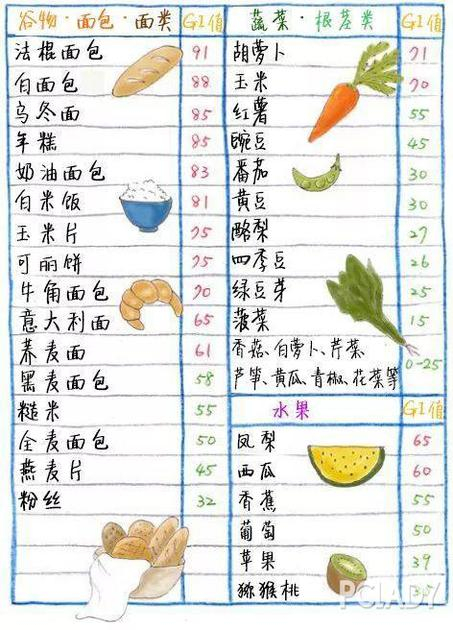 谷物·面包·面类 GI值
法棍面包 91
白面包 88
乌冬面 85
年糕 85
奶油面包 83
白米饭 81
玉米片 75
可丽饼 75
牛角面包 70
意大利面 65
荞麦面 61
黑麦面包 58
糙米 55
全麦面包 50
燕麦片 45
粉丝 32
蔬菜·根茎类 GI值
胡萝卜 71
玉米 70
红薯 55
豌豆 45
番茄 30
黄豆 30
酪梨 27
四季豆 26
绿豆芽 25
菠菜 15
香菇、白萝卜、芹菜、
芦笋、黄瓜、青椒、花菜等 0-25
水果 GI值
凤梨 65
西瓜 60
香蕉 55
葡萄 50
苹果 39
猕猴桃 35
PCLADY